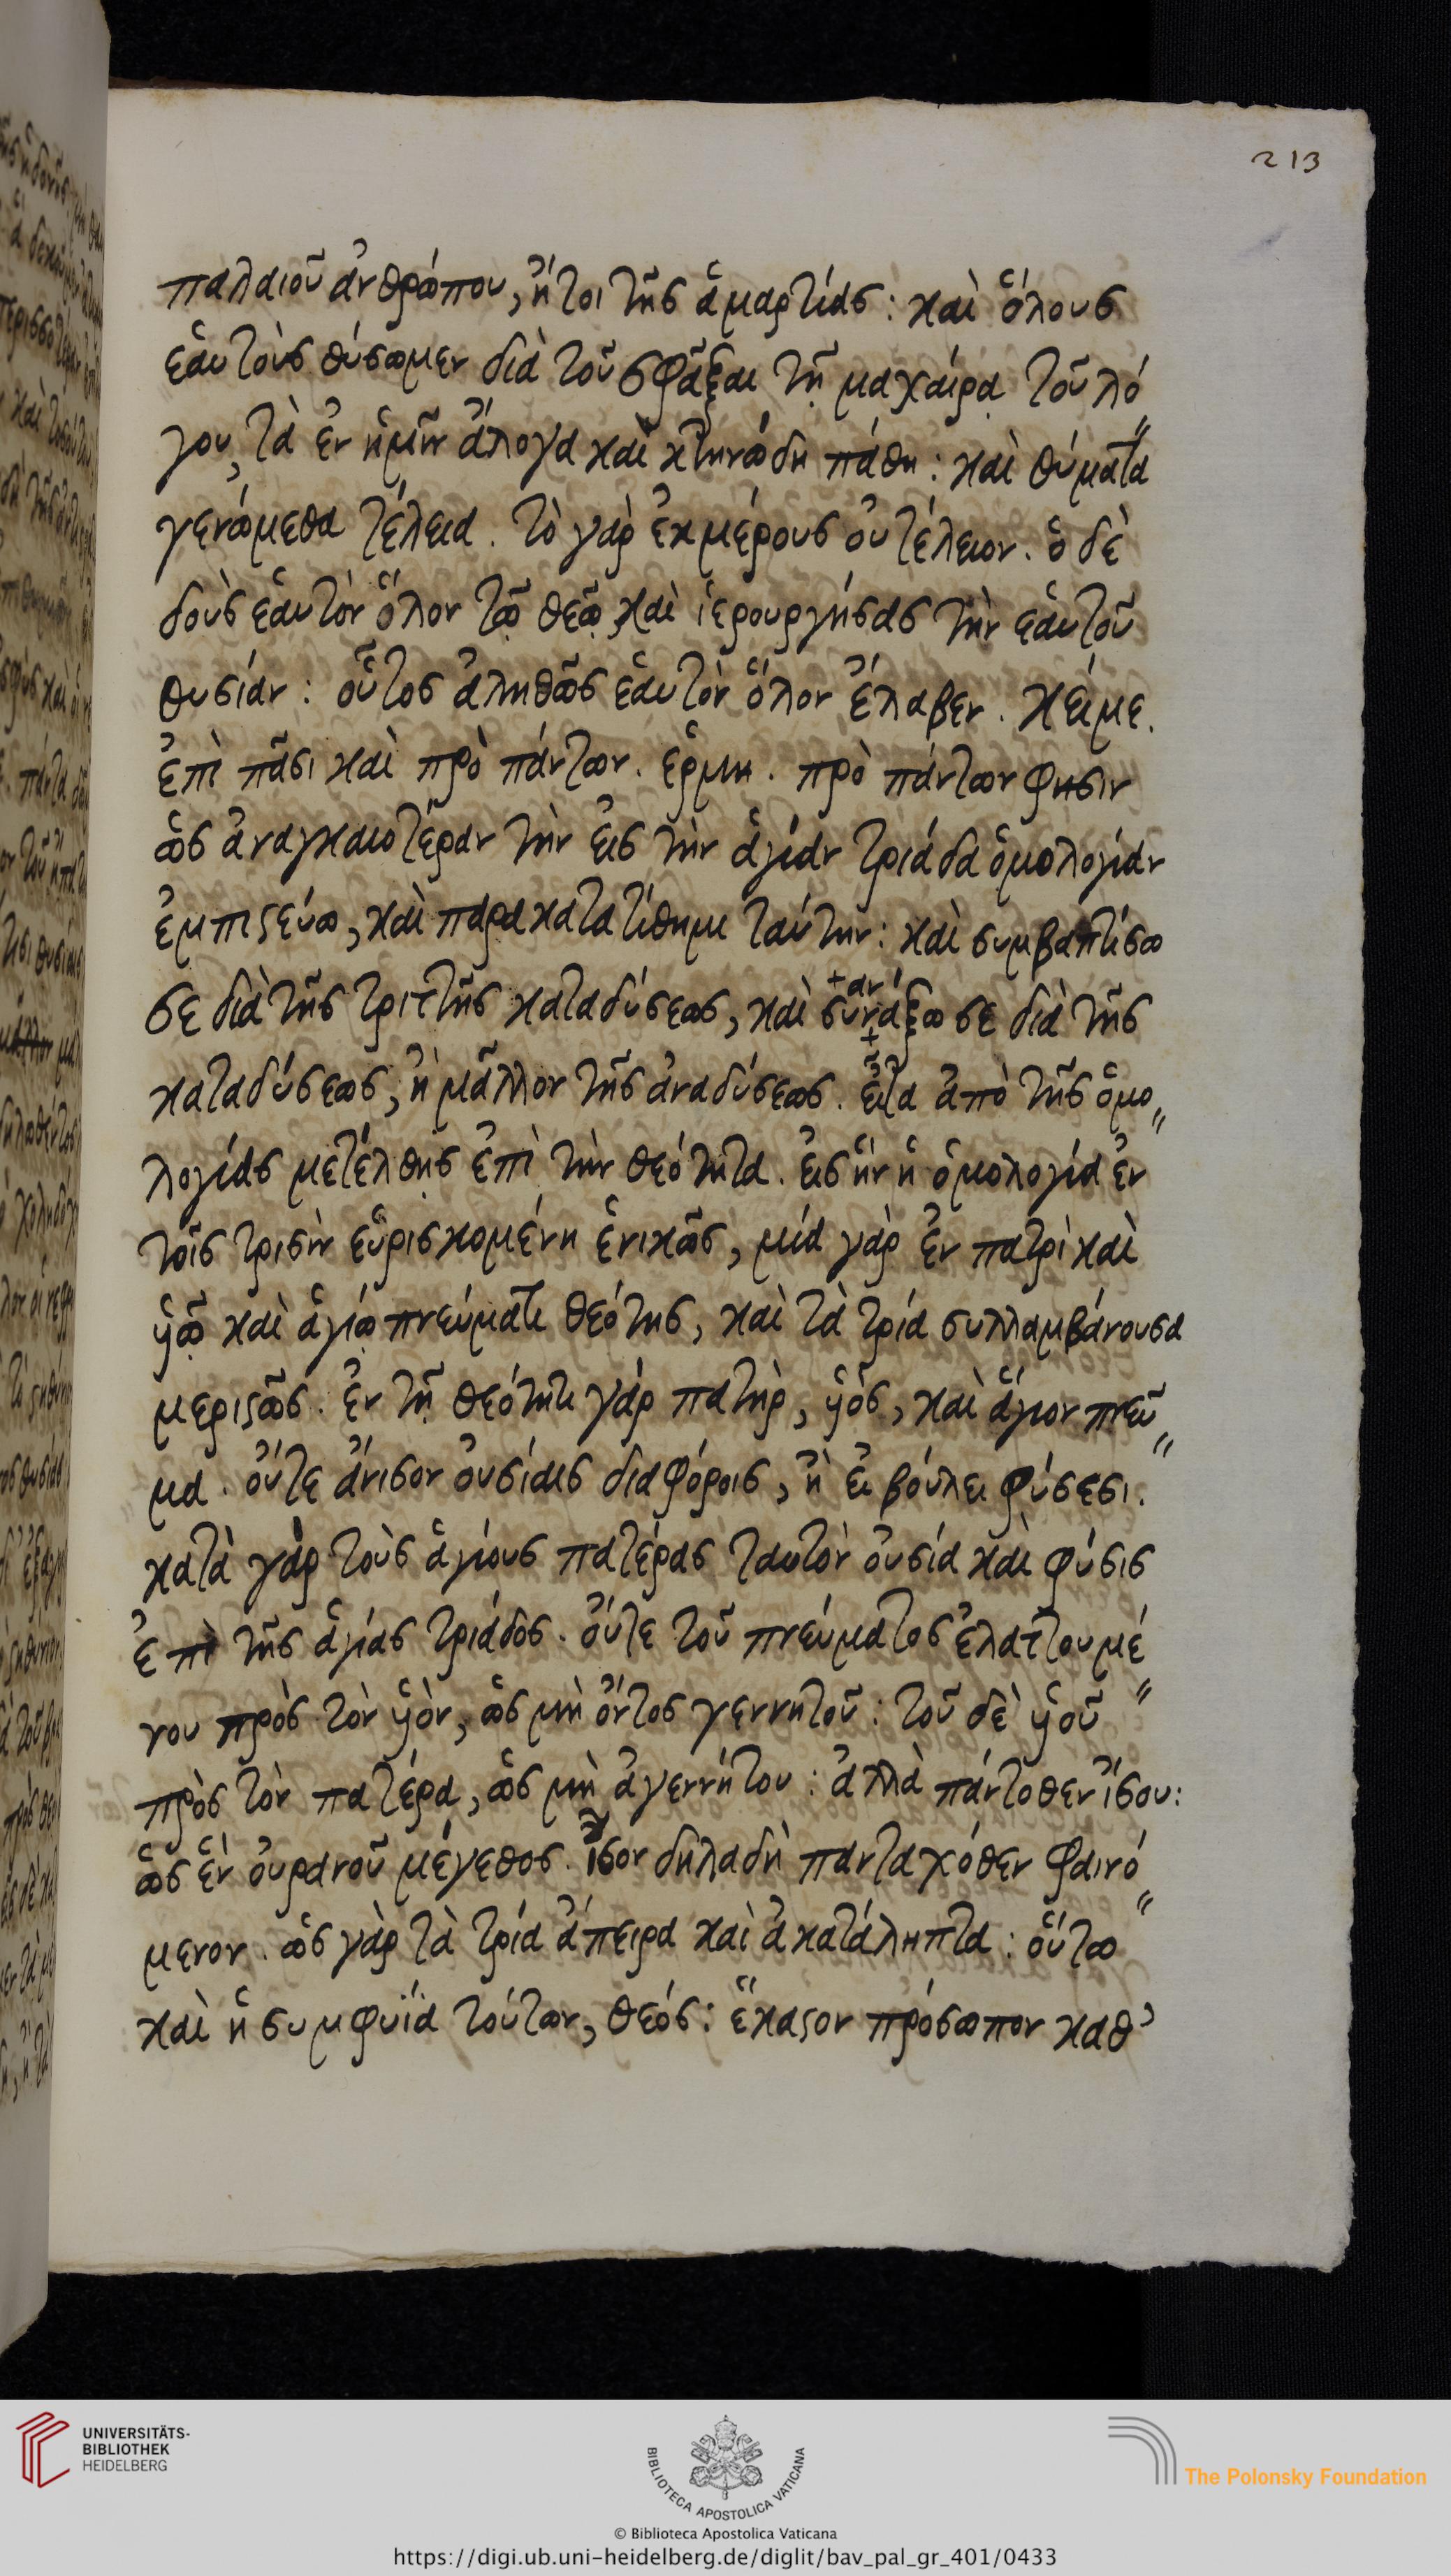 213
παλαιοῦ ἀνθρώπου, ἤτοι τῆς ἁμαρτίας: καὶ ὅλους
ἑαυτοὺς θύσωμεν διὰ τοῦ σφᾶξαι τῇ μαχαίρᾳ τοῦ λό
γου, τὰ ἐν ἡμῖν ἄλογα καὶ κτηνώδη πάθη: καὶ θύματα
γενώμεθα τέλεια. τὸ γὰρ ἐκ μέρους οὐ τέλειον. ὁ δὲ
δοὺς ἑαυτὸν ὅλον τῷ θεῷ, καὶ ἱερουργήσας τὴν ἑαυτοῦ
θυσίαν: οὗτος ἀληθῶς ἑαυτὸν ὅλον ἔλαβεν. κείμε.
ἐπὶ πᾶσι καὶ πρὸ πάντων. ἑρμη. πρὸ πάντων φησιν
ὡς ἀναγκαιοτέραν τὴν εἰς τὴν ἁγίαν τριάδα ὁμολογίαν
ἐμπιστεύω, καὶ παρακατατίθημι ταύτην: καὶ συμβαπτίσω
σε διὰ τῆς τριττῆς καταδύσεως, καὶ συνάξω σε διὰ τῆς
+αν
καταδύσεως, ἢ μᾶλλον τῆς ἀναδύσεως. εἶτα ἀπὸ τῆς ὁμο
λογίας μετέλθῃς ἐπὶ τὴν θεότητα. εἰς ἣν ἡ ὁμολογία ἐν
τοῖς τρισὶν εὑρισκομένη ἑνικῶς, μία γὰρ ἐν πατρὶ καὶ
ὑῷ καὶ ἁγίῳ πνεύματι θεότης, καὶ τὰ τρία συλλαμβάνουσα
μεριστῶς. ἐν τῇ θεότητι γάρ πατὴρ, ὑός, καὶ ἅγιον πνεῦ
μα. οὔτε ἄνισον οὐσίαις διαφόροις, ἢ εἰ βούλει φύσεσι.
κατὰ γὰρ τοὺς ἁγίους πατέρας ταυτὸν οὐσία καὶ φύσις
ἐπὶ τῆς ἁγίας τριάδος. οὔτε τοῦ πνεύματος ἐλαττουμέ
νου πρὸς τὸν ὑὸν, ὡς μὴ ὄντος γεννητοῦ: τοῦ δὲ ὑοῦ
πρὸς τὸν πατέρα, ὡς μὴ ἀγεννήτου: ἀλλὰ πάντοθεν ἴσου:
ὡς ἓν οὐρανοῦ μέγεθος. ἴσον δηλαδὴ πανταχόθεν φαινό
μενον. ὡς γὰρ τὰ τρία ἄπειρα καὶ ἀκατάληπτα: οὕτω
καὶ ἡ συμφυΐα τούτων, θεός: ἕκαστον πρόσωπον καθ'
UNIVERSITÄTS-
BIBLIOTHEK
HEIDELBERG
BIBLIOTECA APOSTOLICA VATICANA
The Polonsky Foundation
© Biblioteca Apostolica Vaticana
https://digi.ub.uni-heidelberg.de/diglit/bav_pal_gr_401/0433